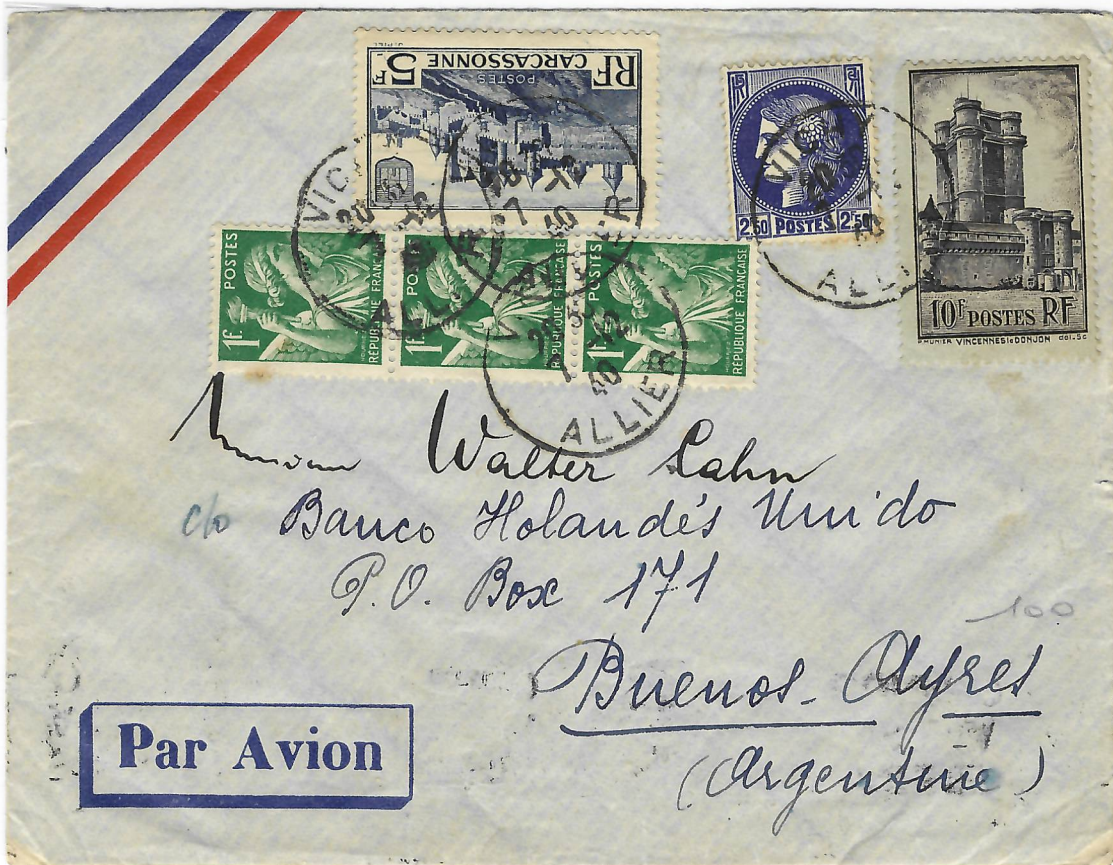 RF POSTES 5F
CARCASSONNE
2,50 POSTES 2,50
10f POSTES RF
VINCENNES le DONJON del.Sc
POSTES 1F. RÉPUBLIQUE FRANÇAISE
POSTES 1F. RÉPUBLIQUE FRANÇAISE
POSTES 1F. RÉPUBLIQUE FRANÇAISE
ALLIER
-12
40
ALLIER
Monsieur Walter Cahn
c/o Banco Holandés Unido
P.O. Box 171
100
Buenos-Ayres
(Argentine)
Par Avion